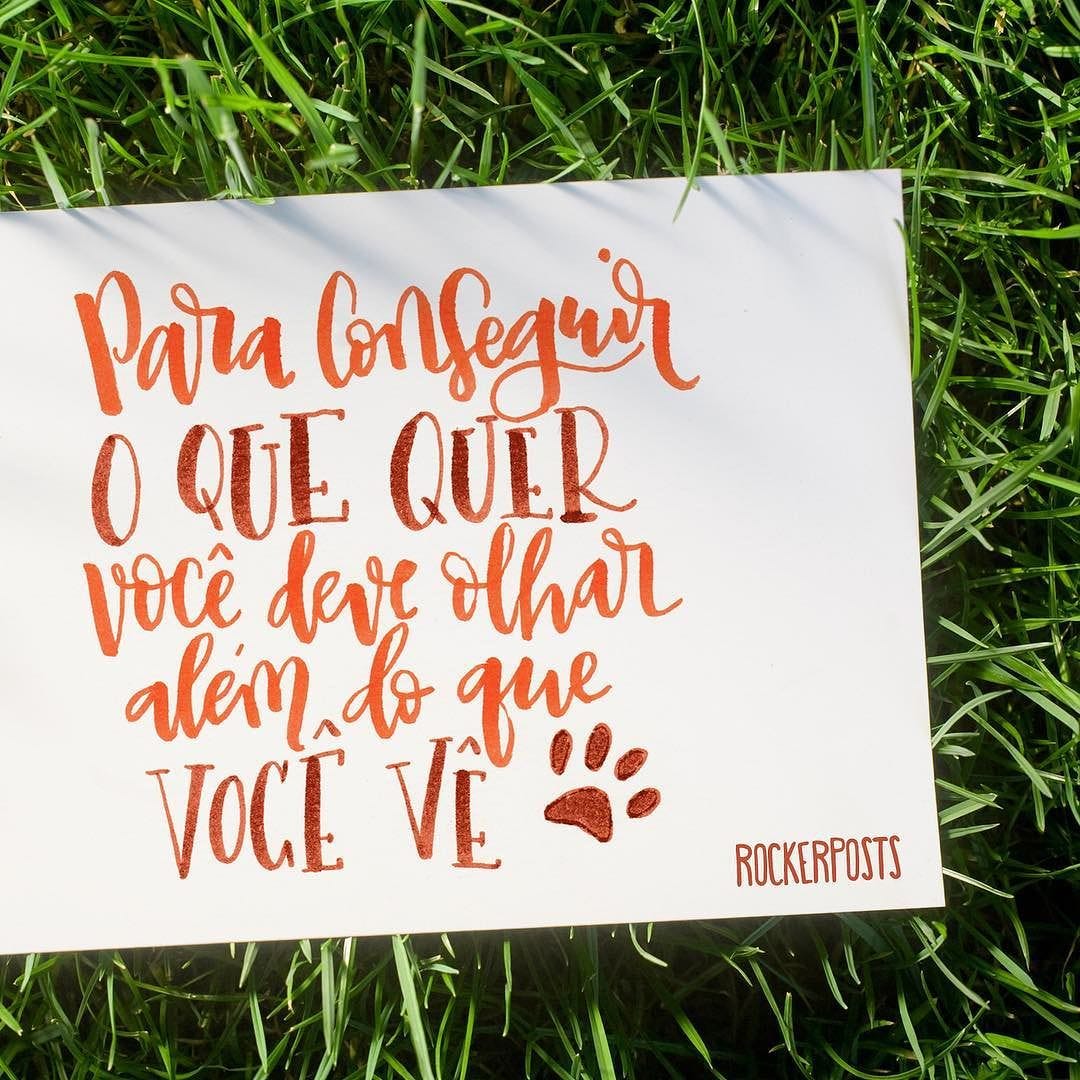 Para Conseguir
O QUE QUER
você deve olhar
além do que
VOCÊ VÊ
ROCKERPOSTS